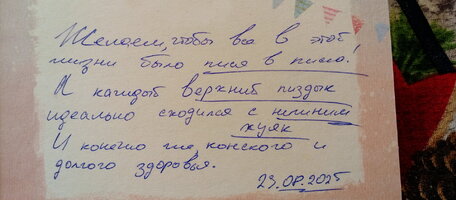 Желаем, чтобы все в этой
жизни было пися в писю!
И каждый верхний пиздык
идеально сходился с нижним
хуяк
И конечно же, конского и
долгого здоровья.
23.08.2025